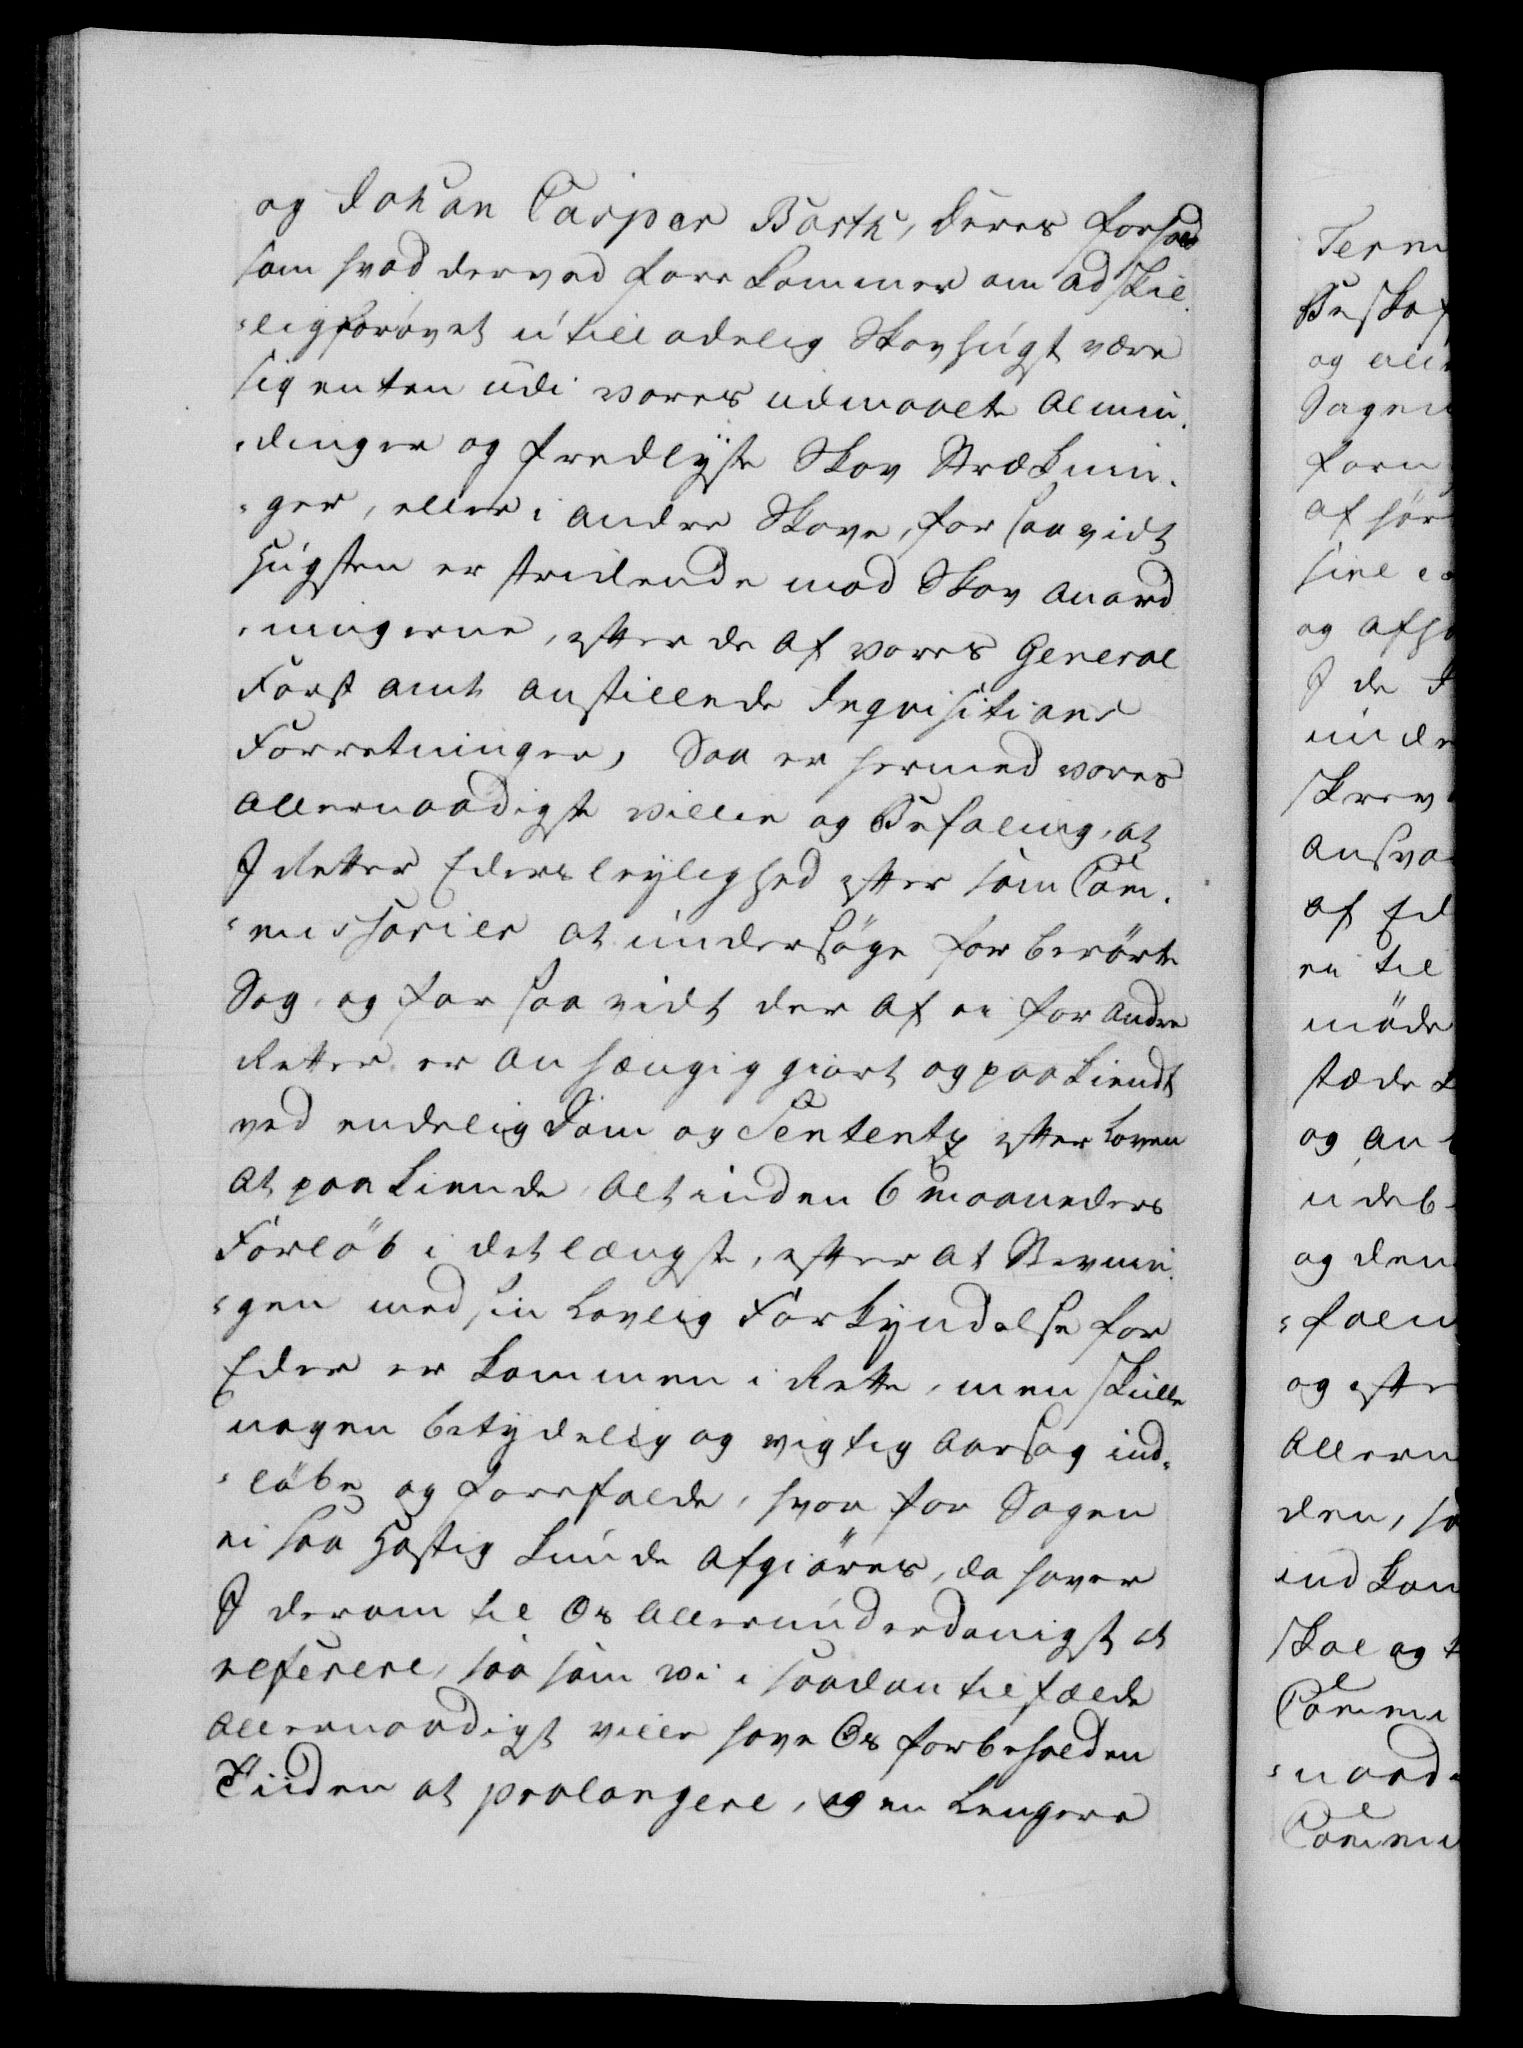 og Johan Casper Barth, deres Forhold
som hvad derved forekommer om adskil¬
¬lig forøvet utilladelig Skovhugst være
sig enten udi vores udmaalte Almin¬
¬dinger og fredlyste Skov Stræknin¬
¬ger, eller i andre Skove, for saavidt
Hugsten er stridende mod Skov Anord
¬ningerne, efter de af vores General
Forst Amt anstillende Inqvisitions
Forretninger, Saa er hermed vores
allernaadigste villie og Befaling, at
I retter Eders leylighed efter som Com¬
¬missarier at undersøge forberørte
Sag, og for saavidt der af ei for andre
Retter er anhængig giort og paakiendt
ved endelig Dom og Sententz efter Loven
at paakiende alt inden 6 Maaneders
Forløb i det længste, efter at Stevnin¬
¬gen med sin lovlig Forkyndelse for
Eder er kommen i Rette, men skulle
nogen betydelig og vigtig Aarsag ind¬
¬løbe og forefalde, hvor for Sagen
ei saa hastig kunde afgiøres, da haver
I derom til Os allerunderdanigst at
referere, saasom vi i saadan tilfælde
allernaadigst ville have Os forbeholden
Tiiden at prolongere, og en lengere
Term
Beskaf
og
Sagen
foru
af hør
sine
og afh
I de
unde
skrev
ansva
af Ed
ei til
møde
stæde
og an
udeb
og den
¬falin
og efte
allern
den, so
ind kom
skal og
Commi
¬naad
Commi